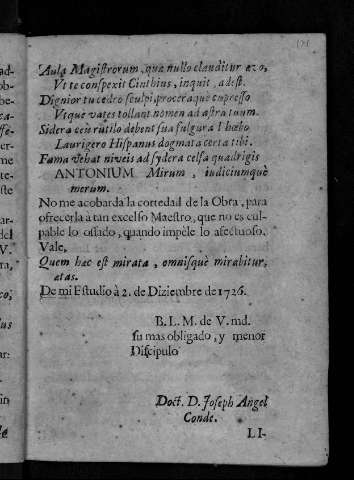 Aula Magistrorum, quæ nullo clauditur ævo,
Vt te conspexit Cinthius, inquit, adest.
Dignior tu cedro sculpi, proceraquè cupresso
Vtque vates tollant nomen ad astra tuum.
Sidera ceù rutilo debent sua fulgura Phœbo
Laurigero Hispanus dogmata certa tibi.
Fama vehat niveis ad sydera celsa quadrigis
ANTONIUM Mirum, iudiciumquè
merum.
No me acobarda la cortedad de la Obra, para
ofrecerla à tan excelso Maestro, que no es cul-
pable lo ossado, quando impéle lo afectuoso.
Vale,
Quem hæc est mirata, omnisquè mirabitur,
ætas.
De mi Estudio à 2. de Diziembre de 1726.
B. L. M. de V. md.
su mas obligado, y menor
Discipulo
Doct. D. Joseph Angel
Conde.
LI-